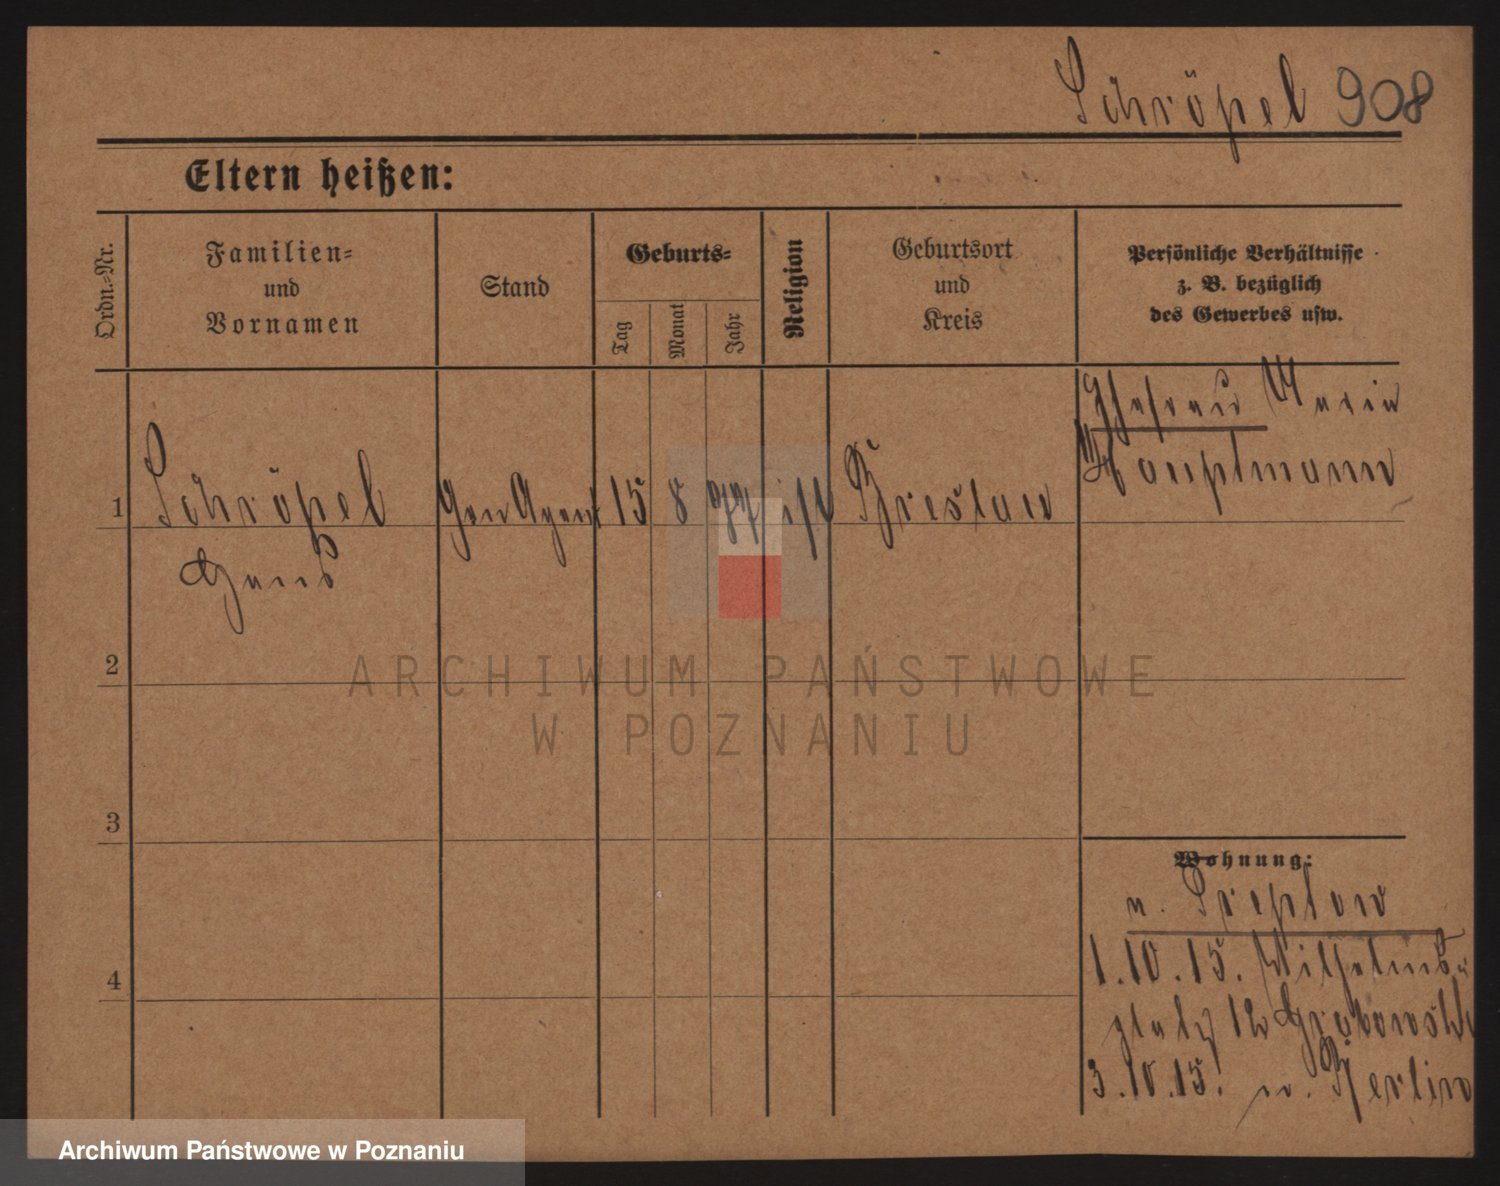 Schröpel 908
Eltern heißen:
Ordn.-Nr.
Familien=
und
Vornamen
Stand
Geburts=
Tag
Monat
Jahr
Religion
Geburtsort
und
Kreis
Persönliche Verhältnisse
z. B. bezüglich
des Gewerbes usw.
Ehefrau Marie
Hauptmann
1
Schröpel
Hans
Gen Agent
15
8
77
Breslau
2
3
4
Wohnung:
n. Treptow
1.10.15. Wilhelms=
platz 12 Grabowski
3.10.15. n. Berlin
ARCHIWUM PAŃSTWOWE
W POZNANIU
Archiwum Państwowe w Poznaniu